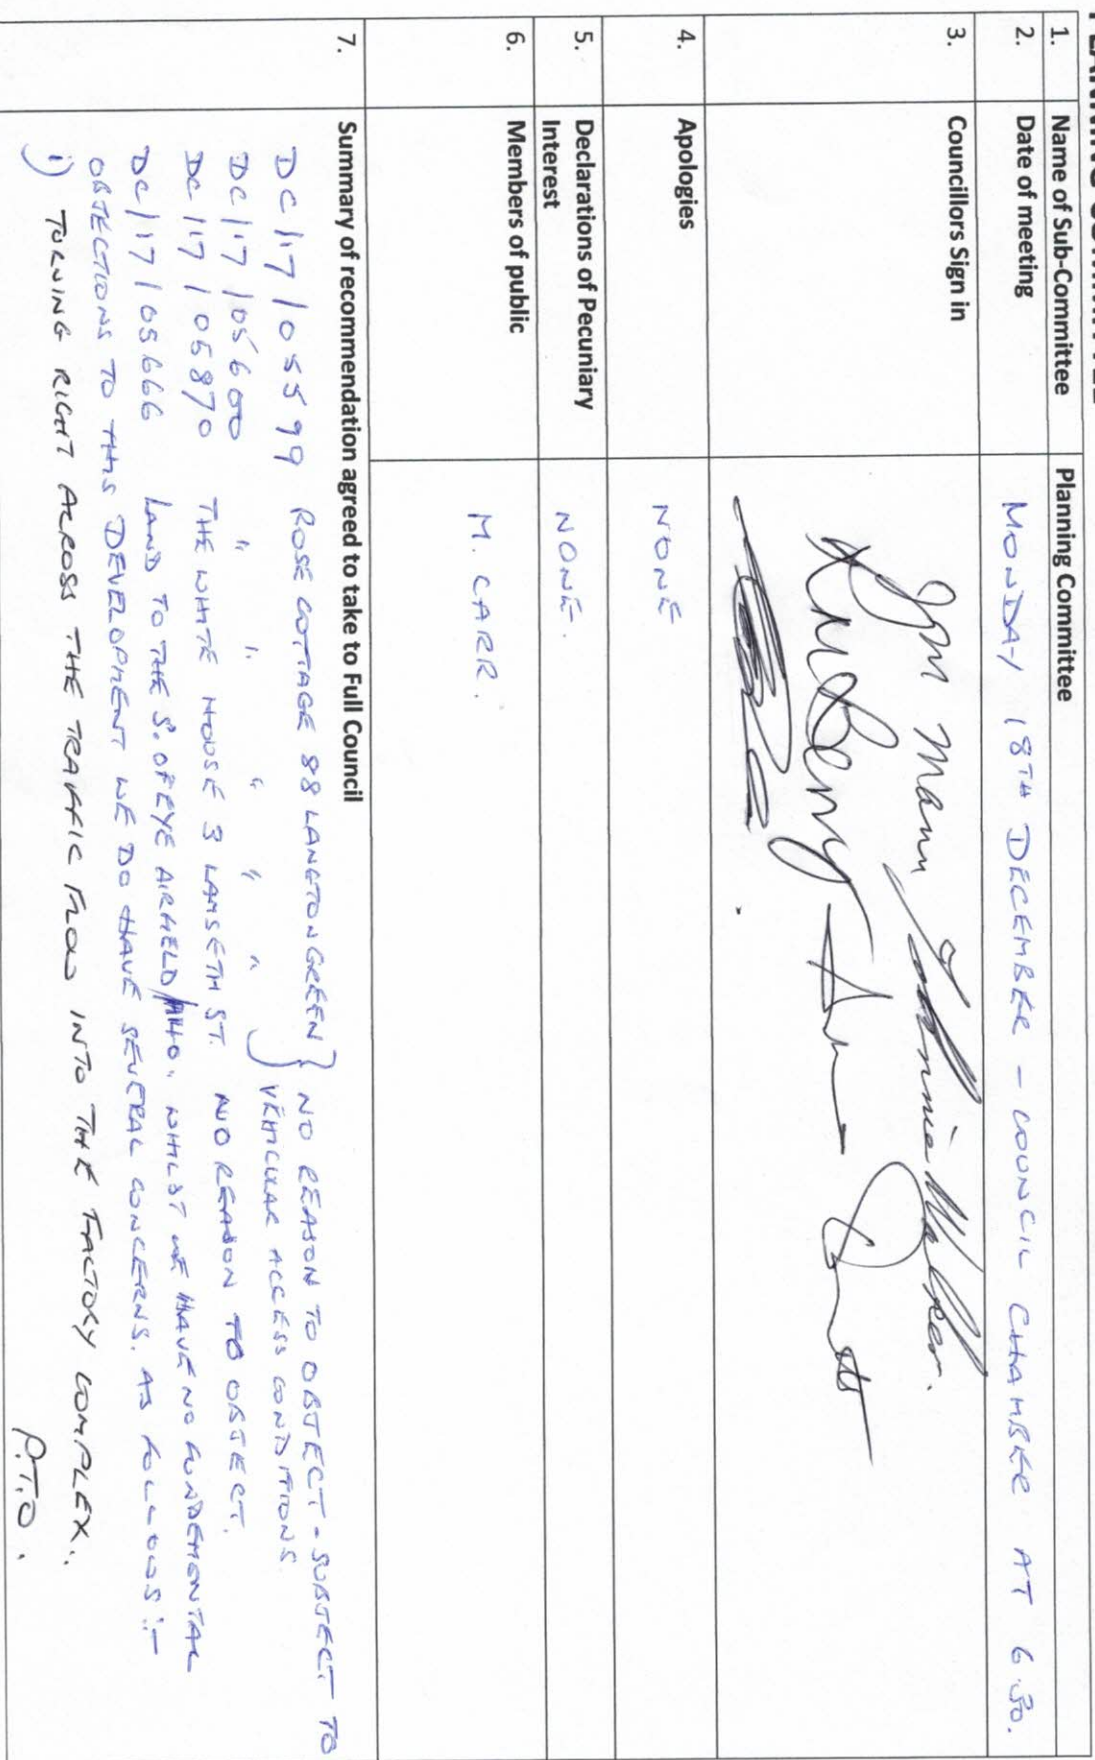 PLANNING COMMITTEE
1. Name of Sub-Committee Planning Committee
2. Date of meeting MONDAY 18TH DECEMBER - COUNCIL CHAMBER AT 6.30.
3. Councillors Sign in
JM Mann Johnnie Walker.
4. Apologies NONE
5. Declarations of Pecuniary Interest NONE.
6. Members of public M. CARR.
7. Summary of recommendation agreed to take to Full Council
DC/17/05599 ROSE COTTAGE 88 LANGTON GREEN } NO REASON TO OBJECT - SUBJECT TO
DC/17/05600 " " " " " ) VEHICULAR ACCESS CONDITIONS.
DC/17/05870 THE WHITE HOUSE 3 LAMSETH ST. NO REASON TO OBJECT.
DC/17/05666 LAND TO THE S. OF EYE AIRFIELD A140. WHILST WE HAVE NO FUNDEMENTAL
OBJECTIONS TO THIS DEVELOPMENT WE DO HAVE SEVERAL CONCERNS. AS FOLLOWS:-
1) TURNING RIGHT ACROSS THE TRAFFIC FLOW INTO THE FACTORY COMPLEX.
P.T.O.